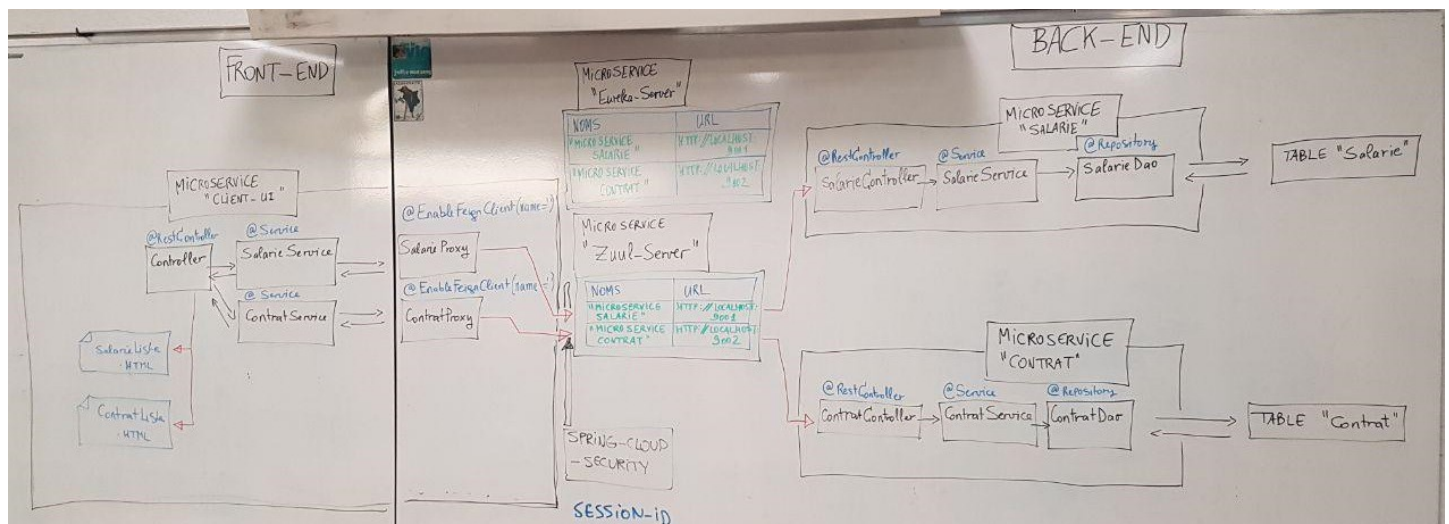 FRONT-END
MICROSERVICE
"CLIENT-UI"
@RestController
Controller
@Service
SalarieService
@Service
ContratService
SalarieListe
.HTML
ContratListe
.HTML
@EnableFeignClient(name='')
SalarieProxy
@EnableFeignClient(name='')
ContratProxy
MICROSERVICE
"Eureka-Server"
NOMS URL
"MICROSERVICE HTTP://LOCALHOST:
SALARIE" 9001
"MICROSERVICE HTTP://LOCALHOST:
CONTRAT" 9002
MICROSERVICE
"Zuul-Server"
NOMS URL
"MICROSERVICE HTTP://LOCALHOST:
SALARIE" 9001
"MICROSERVICE HTTP://LOCALHOST:
CONTRAT" 9002
SPRING-CLOUD
-SECURITY
SESSION-ID
BACK-END
MICROSERVICE
"SALARIE"
@RestController
SalarieController
@Service
SalarieService
@Repository
SalarieDao
TABLE "Salarie"
MICROSERVICE
"CONTRAT"
@RestController
ContratController
@Service
ContratService
@Repository
ContratDao
TABLE "Contrat"